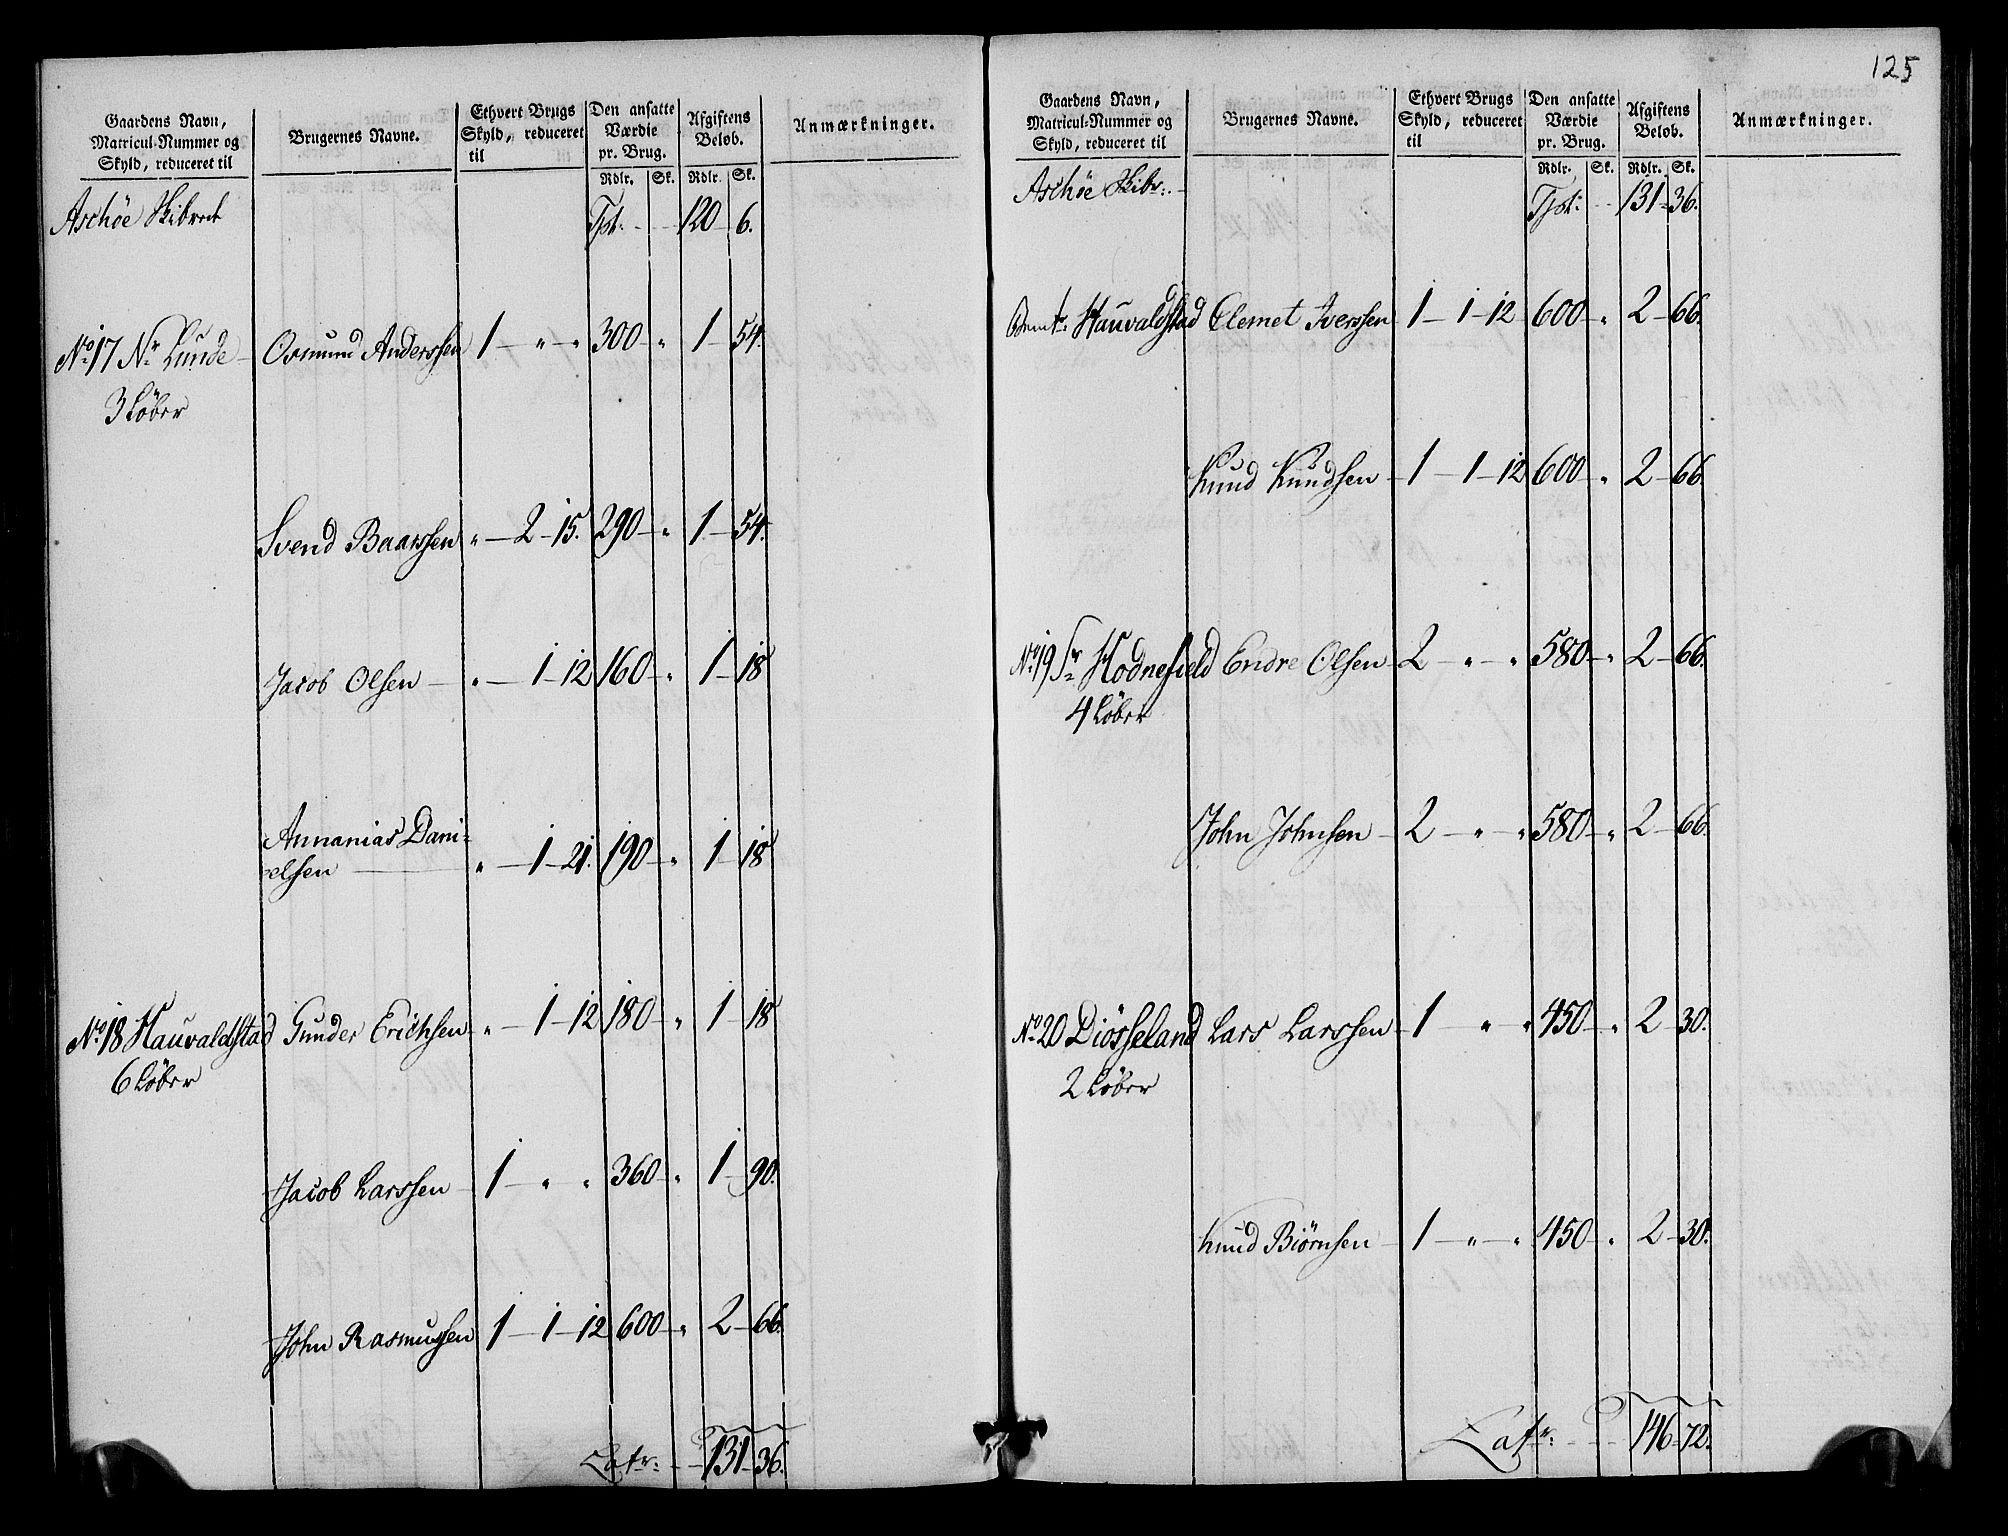 125
Gaardens Navn, Matricul-Nummer og Skyld, reduceret til | Brugernes Navne. | Ethvert Brugs Skyld, reduceret til | Den ansatte Værdie pr. Brug. | Afgiftens Beløb. | Anmærkninger.
Rdlr. | Sk. | Rdlr. | Sk.
Aschöe Skibred | Tpt: | 120 - 6.
No. 17 Nr. Lunde | Osmund Anderssen | 1 - " - " | 300 - " | 1 - 54.
3 Løber
Svend Baarssen | " - 2 - 15. | 290 - " | 1 - 54.
Jacob Olsen | " - 1 - 12 | 160 - " | 1 - 18
Annanias Dani-
elsen | " - 1 - 21. | 190 - " | 1 - 18
No. 18 Hauvaldstad | Gunder Erichsen | " - 1 - 12 | 180 - " | 1 - 18
6 Løber
Jacob Larssen | 1 - " " | 360 - " | 1 - 90.
John Rasmussen | 1 - 1 - 12 | 600 - " | 2 - 66.
Latr: | 131 - 36.
Gaardens Navn, Matricul-Nummer og Skyld, reduceret til | Brugernes Navne. | Ethvert Brugs Skyld, reduceret til | Den ansatte Værdie pr. Brug. | Afgiftens Beløb. | Anmærkninger.
Rdlr. | Sk. | Rdlr. | Sk.
Aschöe Skibr: | Tpt: | 131 - 36.
Hauvaldstad | Clemet Iverssen | 1 - 1 - 12 | 600 - " | 2 - 66.
Knud Knudsen | 1 - 1 - 12 | 600 - " | 2 - 66.
No. 19 Sr. Hodnefield | Endre Olsen | 2 - " - " | 580 - " | 2 - 66.
4 Løber
John Johnsen | 2 - " - " | 580 - " | 2 - 66.
No. 20 Diösseland | Lars Larssen | 1 " " | 450 - " | 2 - 30.
2 Løber
Knud Biørnsen | 1 - " - " | 450 - " | 2 - 30.
Latr: | 146 - 72.